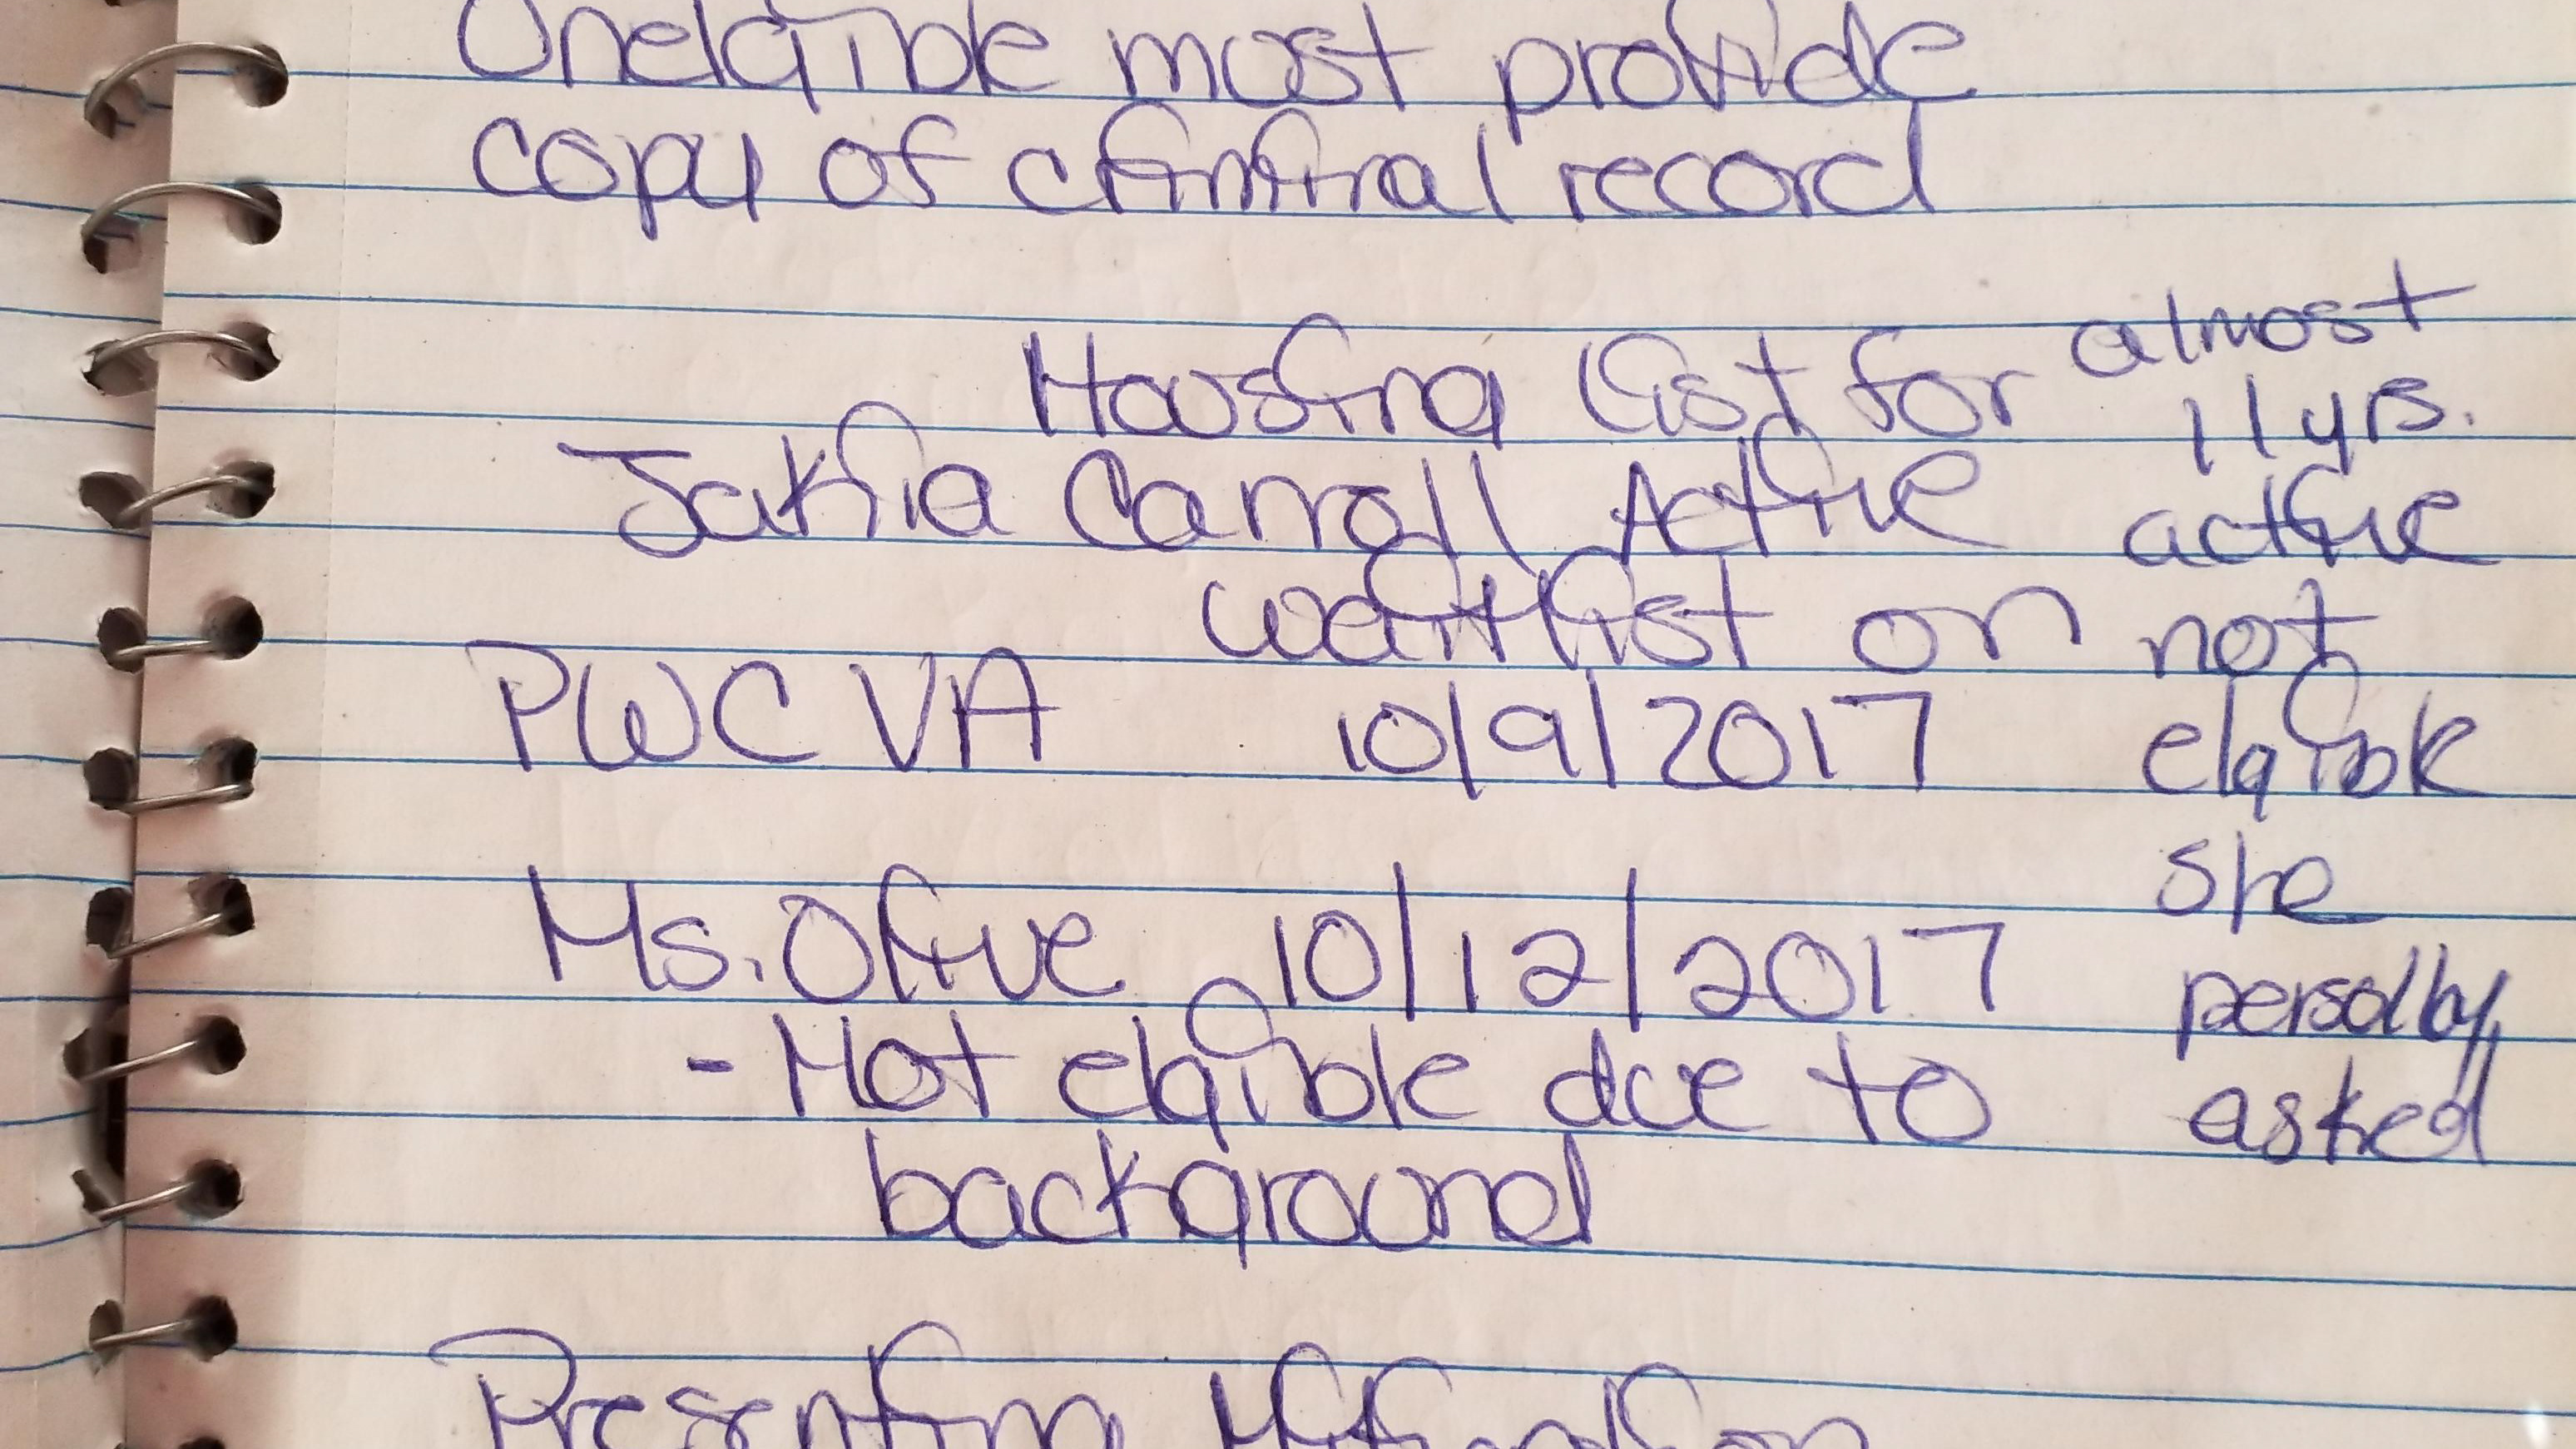 Unelgible must provide
copy of criminal record
Housing list for
Jakia Carroll Active
waitlist on
PWC VA 10/9/2017
Ms. Olive 10/12/2017
- Not elgible due to
background
Presenting Mitigation
almost
11 yrs.
active
not
elgible
she
persolly
asked